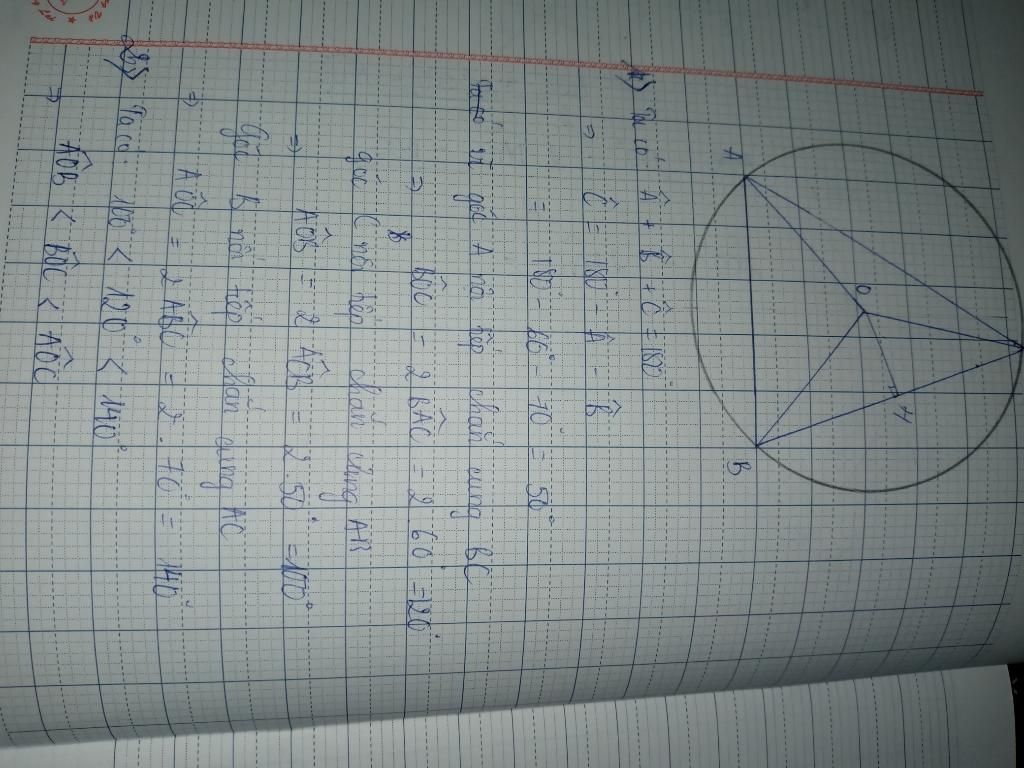 A
O
H
B
1) Ta có: Â + B̂ + Ĉ = 180°
⇒ Ĉ = 180° - Â - B̂
= 180° - 60° - 70° = 50°
góc A nội tiếp chắn cung BC
⇒ BÔC = 2 BÂC = 2 60° = 120°
góc C nội tiếp chắn cung AB
⇒ AÔB = 2 AĈB = 2 50° = 100°
Góc B nội tiếp chắn cung AC
⇒ AÔC = 2 AB̂C = 2. 70° = 140°
2) Ta có: 100° < 120° < 140°
⇒ AÔB < BÔC < AÔC